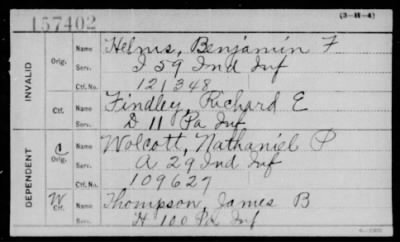 157402
(3-H-4)
INVALID
Orig.
Name Helms, Benjamin F
Serv. I 59 Ind Inf
Ctf. No. 121348
Ctf.
Name Findley, Richard E
Serv. D 11 Pa Inf
DEPENDENT
C
Orig.
Name Wolcott, Nathaniel P
Serv. A 29 Ind Inf
Ctf. No. 109627
W
Ctf.
Name Thompson, James B
Serv. H 100 Pa Inf